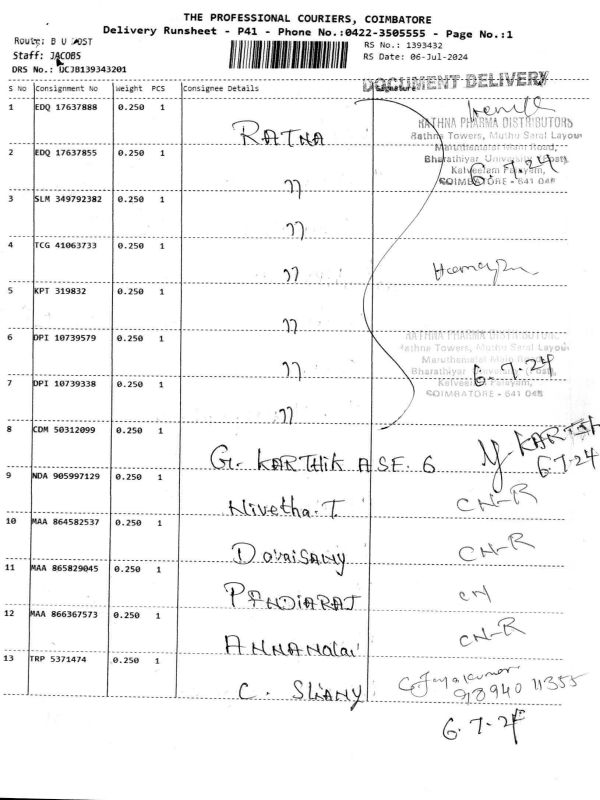 THE PROFESSIONAL COURIERS, COIMBATORE
Delivery Runsheet - P41 - Phone No.:0422-3505555 - Page No.:1
Route: B U POST
RS No.: 1393432
Staff: JACOBS
RS Date: 06-Jul-2024
DRS No.: UCJB139343201
DOCUMENT DELIVERY
S No Consignment No Weight PCS Consignee Details
1 EDQ 17637888 0.250 1 RATNA
RATHNA PHARMA DISTRIBUTORS
Rathna Towers, Muthu Saral Layout
Maruthamalai Main Road,
Bharathiyar University (Post),
Kalveeram Palayam,
COIMBATORE - 641 046
6.7.24
2 EDQ 17637855 0.250 1 "
3 SLM 349792382 0.250 1 "
4 TCG 41063733 0.250 1 "
5 KPT 319832 0.250 1 "
6 DPI 10739579 0.250 1 "
RATHNA PHARMA DISTRIBUTORS
Rathna Towers, Muthu Saral Layout
Maruthamalai Main Road,
Bharathiyar University (Post),
Kalveeram Palayam,
COIMBATORE - 641 046
6.7.24
7 DPI 10739338 0.250 1 "
8 CDM 50312099 0.250 1 G. KARTHIK ASE. 6 KARTIK
6.7.24
9 NDA 905997129 0.250 1 Nivetha. T. CN-R
10 MAA 864582537 0.250 1 DoraiSamy CN-R
11 MAA 865829045 0.250 1 PANDIARAJ CN
12 MAA 866367573 0.250 1 ANNAMalai CN-R
13 TRP 5371474 0.250 1 C. C. Jayakumar
98940 11355
6.7.24